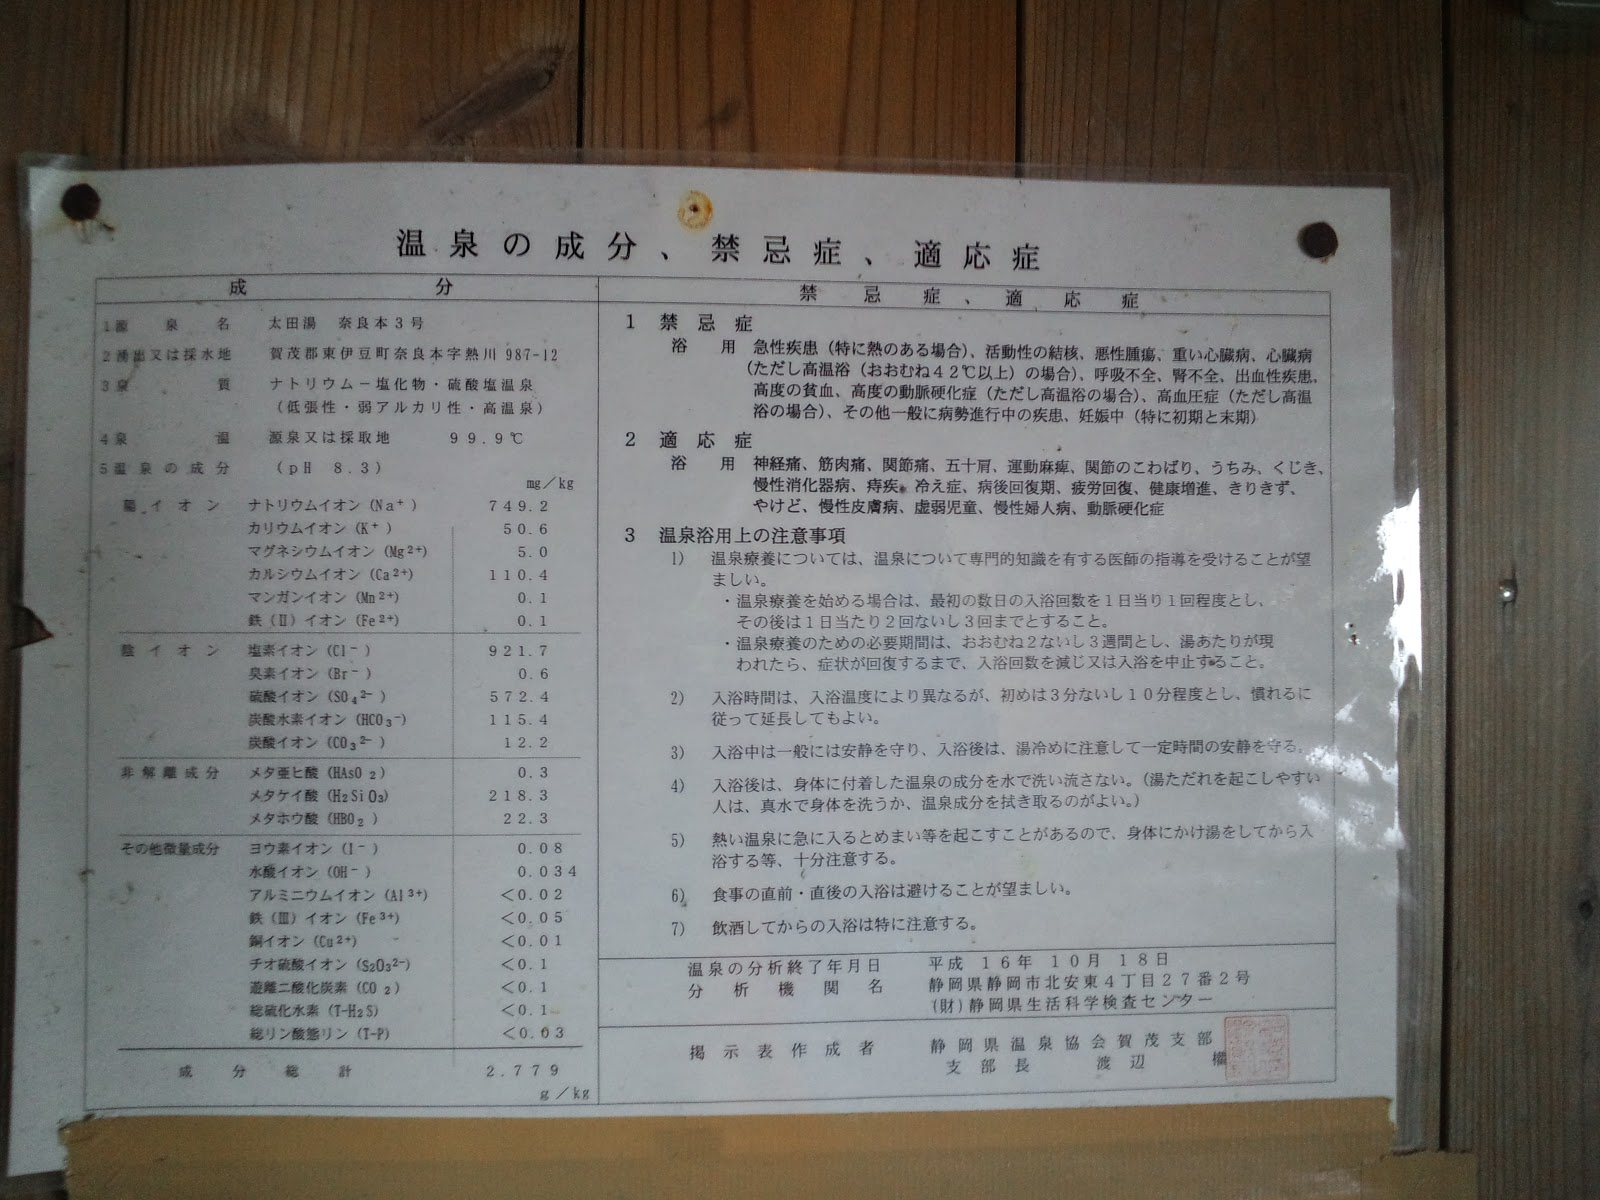 温泉の成分、禁忌症、適応症
成分
1源泉名 太田湯 奈良本3号
2湧出又は採水地 賀茂郡東伊豆町奈良本字熱川 987-12
3泉質 ナトリウム－塩化物・硫酸塩温泉
(低張性・弱アルカリ性・高温泉)
4泉温 源泉又は採取地 99.9℃
5温泉の成分 (pH 8.3)
mg/kg
陽イオン ナトリウムイオン(Na⁺) 749.2
カリウムイオン(K⁺) 50.6
マグネシウムイオン(Mg²⁺) 5.0
カルシウムイオン(Ca²⁺) 110.4
マンガンイオン(Mn²⁺) 0.1
鉄(Ⅱ)イオン(Fe²⁺) 0.1
陰イオン 塩素イオン(Cl⁻) 921.7
臭素イオン(Br⁻) 0.6
硫酸イオン(SO₄²⁻) 572.4
炭酸水素イオン(HCO₃⁻) 115.4
炭酸イオン(CO₃²⁻) 12.2
非解離成分 メタ亜ヒ酸(HAsO₂) 0.3
メタケイ酸(H₂SiO₃) 218.3
メタホウ酸(HBO₂) 22.3
その他微量成分 ヨウ素イオン(I⁻) 0.08
水酸イオン(OH⁻) 0.034
アルミニウムイオン(Al³⁺) <0.02
鉄(Ⅲ)イオン(Fe³⁺) <0.05
銅イオン(Cu²⁺) <0.01
チオ硫酸イオン(S₂O₃²⁻) <0.1
遊離二酸化炭素(CO₂) <0.1
総硫化水素(T-H₂S) <0.1
総リン酸態リン(T-P) <0.03
成分総計 2.779
g/kg
禁忌症、適応症
1 禁忌症
浴用 急性疾患(特に熱のある場合)、活動性の結核、悪性腫瘍、重い心臓病、心臓病
(ただし高温浴(おおむね42℃以上)の場合)、呼吸不全、腎不全、出血性疾患、
高度の貧血、高度の動脈硬化症(ただし高温浴の場合)、高血圧症(ただし高温
浴の場合)、その他一般に病勢進行中の疾患、妊娠中(特に初期と末期)
2 適応症
浴用 神経痛、筋肉痛、関節痛、五十肩、運動麻痺、関節のこわばり、うちみ、くじき、
慢性消化器病、痔疾、冷え症、病後回復期、疲労回復、健康増進、きりきず、
やけど、慢性皮膚病、虚弱児童、慢性婦人病、動脈硬化症
3 温泉浴用上の注意事項
1) 温泉療養については、温泉について専門的知識を有する医師の指導を受けることが望
ましい。
・温泉療養を始める場合は、最初の数日の入浴回数を1日当り1回程度とし、
その後は1日当たり2回ないし3回までとすること。
・温泉療養のための必要期間は、おおむね2ないし3週間とし、湯あたりが現
われたら、症状が回復するまで、入浴回数を減じ又は入浴を中止すること。
2) 入浴時間は、入浴温度により異なるが、初めは3分ないし10分程度とし、慣れるに
従って延長してもよい。
3) 入浴中は一般には安静を守り、入浴後は、湯冷めに注意して一定時間の安静を守る。
4) 入浴後は、身体に付着した温泉の成分を水で洗い流さない。(湯ただれを起こしやすい
人は、真水で身体を洗うか、温泉成分を拭き取るのがよい。)
5) 熱い温泉に急に入るとめまい等を起こすことがあるので、身体にかけ湯をしてから入
浴する等、十分注意する。
6) 食事の直前・直後の入浴は避けることが望ましい。
7) 飲酒してからの入浴は特に注意する。
温泉の分析終了年月日 平成 16年 10月 18日
分析機関名 静岡県静岡市北安東4丁目27番2号
(財)静岡県生活科学検査センター
掲示表作成者 静岡県温泉協会賀茂支部
支部長 渡辺